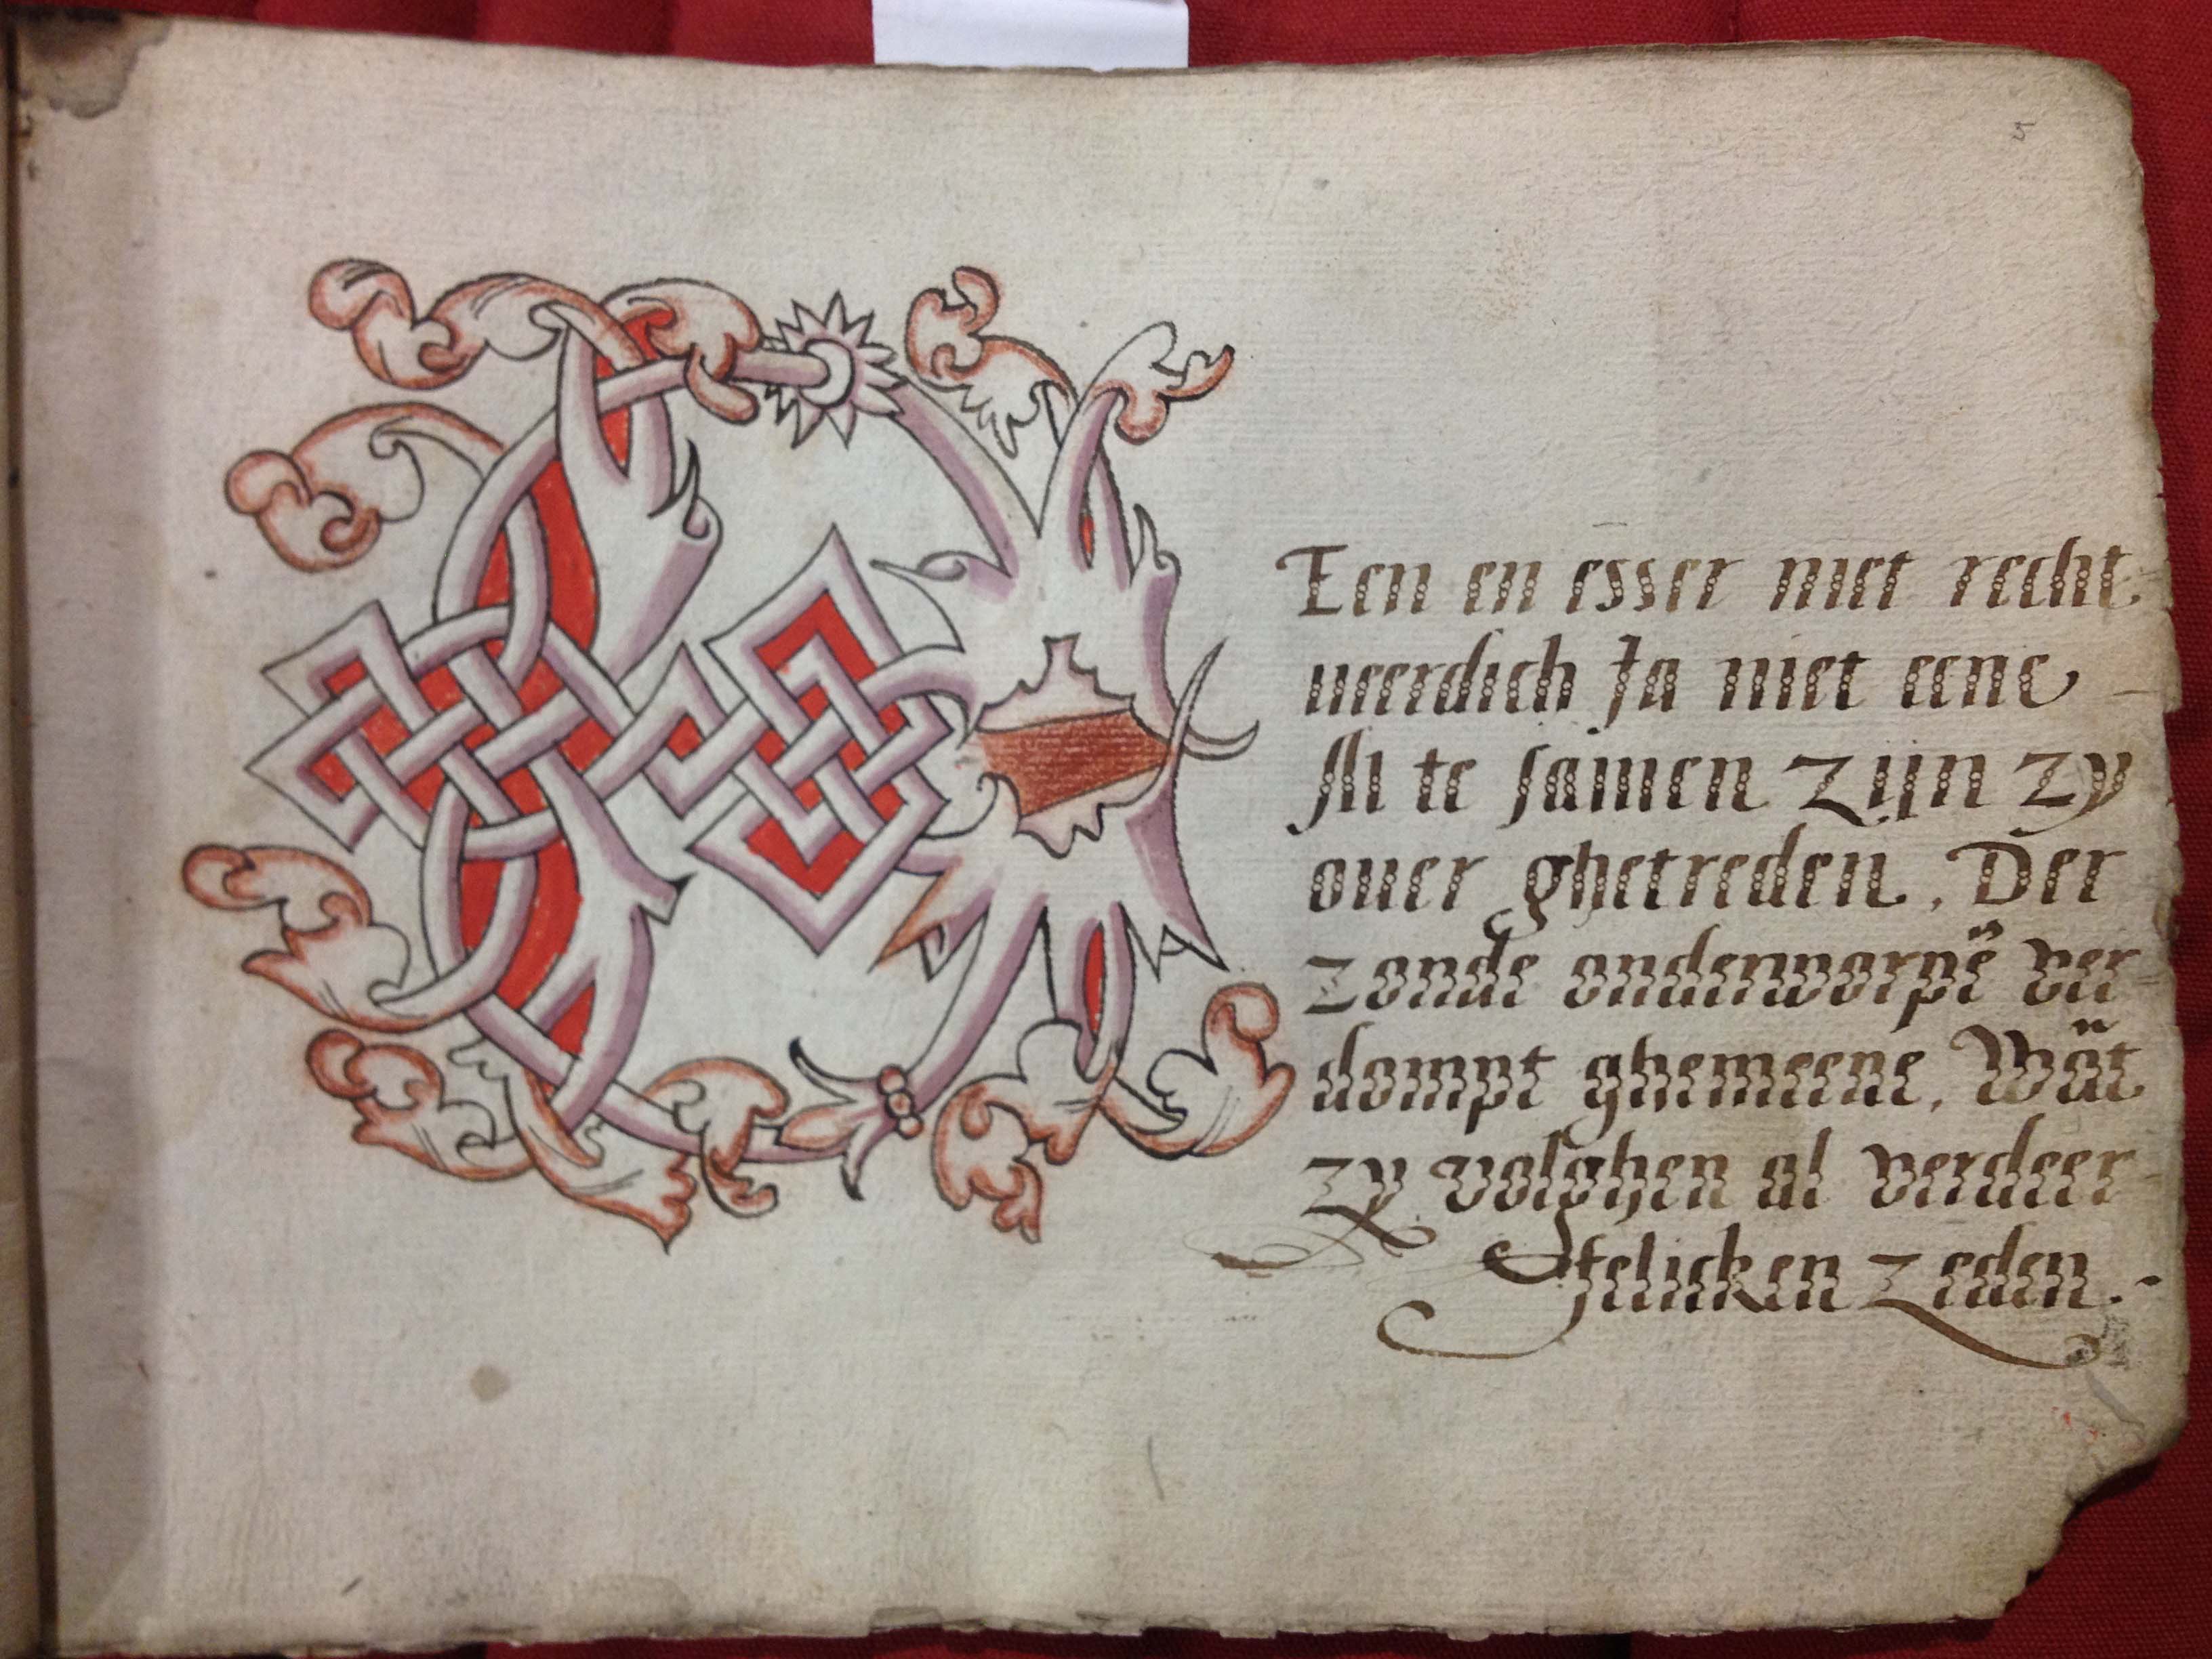 5
Een en esser niet recht
ueerdich Ja niet eene
Al te samen zijn zy
ouer ghetreden, Der
zonde onderworpē ver
dompt ghemeene, Wāt
zy volghen al verdeer
ffelicken zeden.